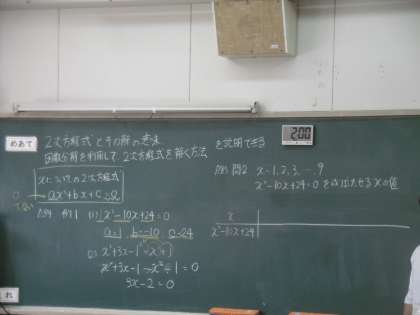 めあて
2次方程式とその解の意味
因数分解を利用して、2次方程式を解く方法 を説明できる
2:00
xについての2次方程式
ax²+bx+c=0
0でない
P.59 例1 (1) x²-10x+24=0
a=1 b=-10 c=24
(2) x²+3x-1=x²+1
x²+3x-1-x²-1=0
3x-2=0
P.81 問2 x=1,2,3,…9
x²-10x+24=0を成り立たせるxの値
x
x²-10x+24
れ